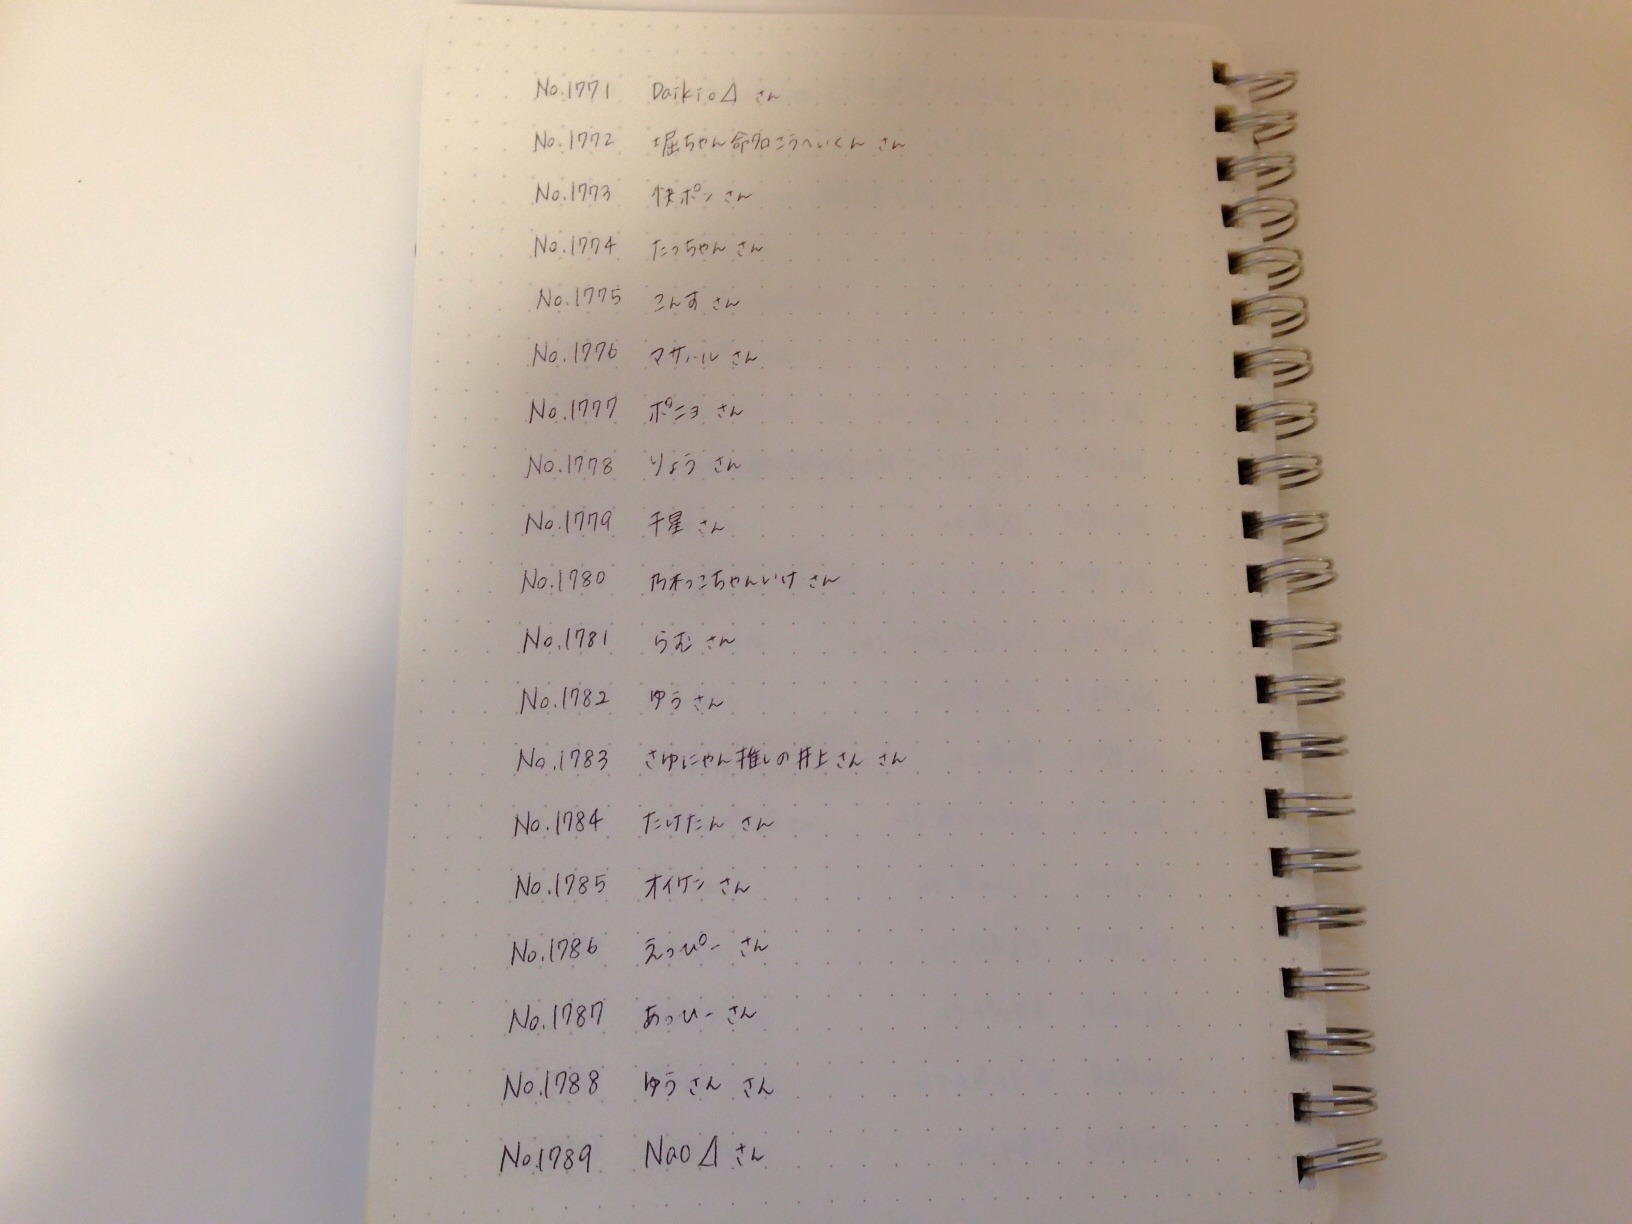 No.1771 Daikio⊿ さん
No.1772 堀ちゃん命名こうへいくん さん
No.1773 快ポン さん
No.1774 たっちゃん さん
No.1775 こんす さん
No.1776 マサハル さん
No.1777 ポニョ さん
No.1778 りょう さん
No.1779 千星 さん
No.1780 乃木っこちゃんいけ さん
No.1781 らむ さん
No.1782 ゆう さん
No.1783 さゆにゃん推しの井上さん さん
No.1784 たけたん さん
No.1785 オイケン さん
No.1786 えっぴー さん
No.1787 あっひー さん
No.1788 ゆうさん さん
No.1789 Nao⊿ さん